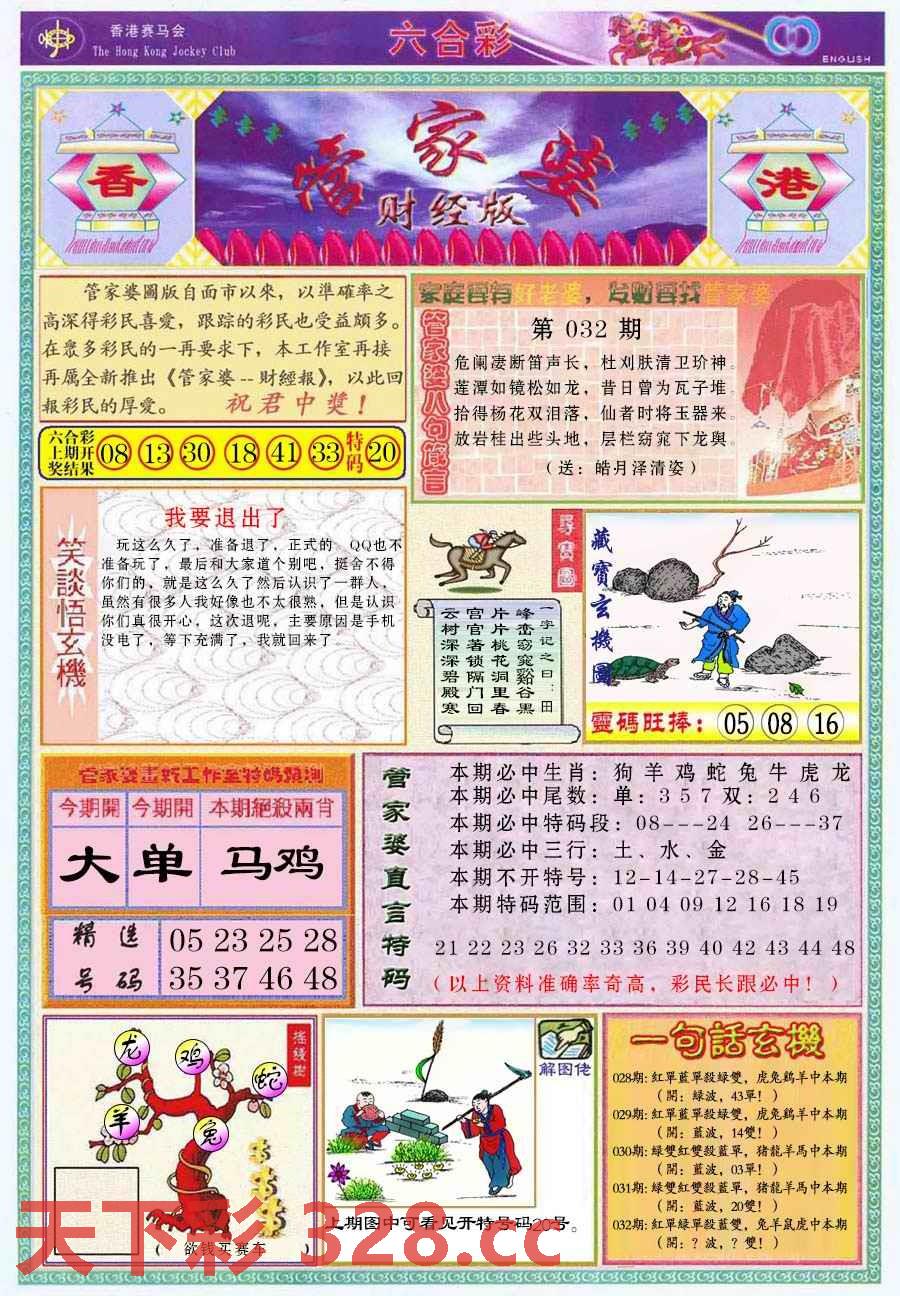 香港赛马会
The Hong Kong Jockey Club
六合彩
ENGLISH
香
管家婆
财经版
港
管家婆圖版自面市以來，以準確率之
高深得彩民喜愛，跟踪的彩民也受益頗多。
在眾多彩民的一再要求下，本工作室再接
再厲全新推出《管家婆--財經報》，以此回
報彩民的厚愛。 祝君中獎！
六合彩
上期开
奖结果
08 13 30 18 41 33 特码 20
家庭要有好老婆，发财要找管家婆
管家婆八句箴言
第 032 期
危阑凄断笛声长，杜刈肤清卫玠神。
莲潭如镜松如龙，昔日曾为瓦子堆。
拾得杨花双泪落，仙者时将玉器来。
放岩桂出些头地，层栏窈窕下龙舆。
（送：皓月泽清姿）
笑談悟玄機
我要退出了
玩这么久了，准备退了，正式的 QQ也不
准备玩了，最后和大家道个别吧，挺舍不得
你们的，就是这么久了然后认识了一群人，
虽然有很多人我好像也不太很熟，但是认识
你们真很开心，这次退呢，主要原因是手机
没电了，等下充满了，我就回来了
尋寶圖
一字记之曰：田
峰峦窈窕谿谷黑
片片桃花洞里春
宫官著锁隔门回
云树深深碧殿寒
藏寶玄機圖
靈碼旺捧：05 08 16
管家婆畫輯工作室特碼預測
今期開 今期開 本期絕殺兩肖
大 单 马鸡
精选
号码
05 23 25 28
35 37 46 48
管家婆直言特码
本期必中生肖：狗 羊 鸡 蛇 兔 牛 虎 龙
本期必中尾数：单：3 5 7 双：2 4 6
本期必中特码段：08---24 26---37
本期必中三行：土、水、金
本期不开特号：12-14-27-28-45
本期特码范围：01 04 09 12 16 18 19
21 22 23 26 32 33 36 39 40 42 43 44 48
（以上资料准确率奇高，彩民长跟必中！）
摇錢樹
龙
鸡
蛇
羊
兔
（ 欲钱买赛车 ）
解图佬
上期图中可看见开特号码20号。
一句話玄機
028期：紅單藍單殺緑雙，虎兔鷄羊中本期
（開：緑波，43單！）
029期：紅單藍單殺緑雙，虎兔鷄羊中本期
（開：藍波，14雙！）
030期：緑雙紅雙殺藍單，猪龍羊馬中本期
（開：藍波，03單！）
031期：緑雙紅雙殺藍單，猪龍羊馬中本期
（開：藍波，20雙！）
032期：紅單緑單殺藍雙，兔羊鼠虎中本期
（開：？波，？雙！）
天下彩 328.cc